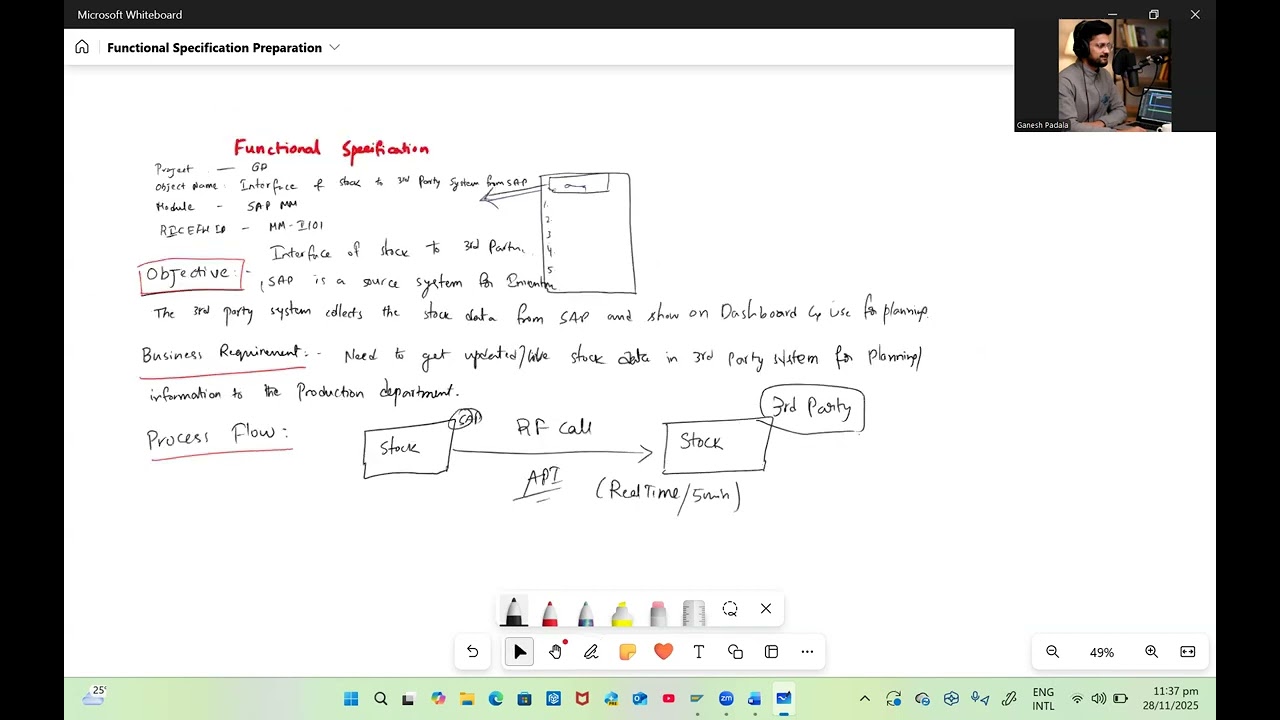 Microsoft Whiteboard
Functional Specification Preparation
Ganesh Padala
Functional Specification
Project — GP
Object Name: Interface of stock to 3rd Party System from SAP
Module - SAP MM
RICEFW ID - MM-I101
1.
2.
3
4
5
Interface of stock to 3rd Party.
Objective: - SAP is a source system for
The 3rd party system collects the stock data from SAP and show on Dashboard & use for planning.
Business Requirement: - Need to get updated/live stock data in 3rd Party system for planning/
information to the Production department.
Process Flow:
Stock
SAP
RF Call
API
Stock
3rd Party
(Real Time/5min)
49%
25°
ENG
INTL
11:37 pm
28/11/2025